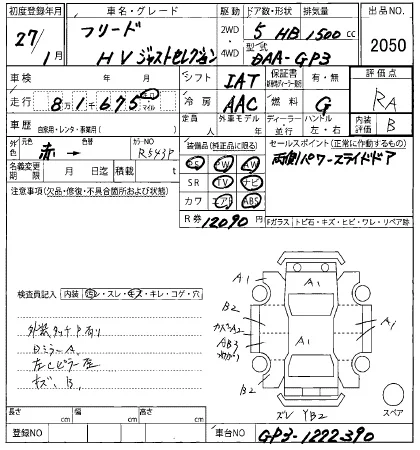 初度登録年月 車名・グレード 駆動 ドア数・形状 排気量 出品NO.
27/1月 フリード 2WD・4WD 5 HB 1500cc 2050
HV ジャストセレクション 型式 DAA-GP3
車検 年 月 シフト IAT 保証書 有・無 評価点
走行 8万1千675 キロ マイル 冷房 AAC 燃料 G RA
車歴 自家用・レンタ・事業用( ) 定員 人 外車モデル 年 ディーラー・並行 ハンドル 左・右 内装評価 B
外色 元色 赤 → 色替 カラーNO R543P 装備品(純正品に限る) セールスポイント(正常に作動するもの)
名義変更期限 月 日迄 積載 t PS PW AW 両側パワースライドドア
注意事項(欠品・修復・不具合箇所および状態) SR TV ナビ
カワ エアB ABS
R券 12090円 Fガラス トビ石・キズ・ヒビ・ワレ・リペア跡
検査員記入 内装 汚・スレ・キズ・キレ・コゲ・穴
外装タッチP有り
Dミラー A.
左Cピラー歪
キズ、B.
A1
A1
B2
A2
AB3
A1
A1
B2
ズレ YB2
スペア
長さ cm 幅 cm 高さ cm
登録NO 車台NO GP3-1222390